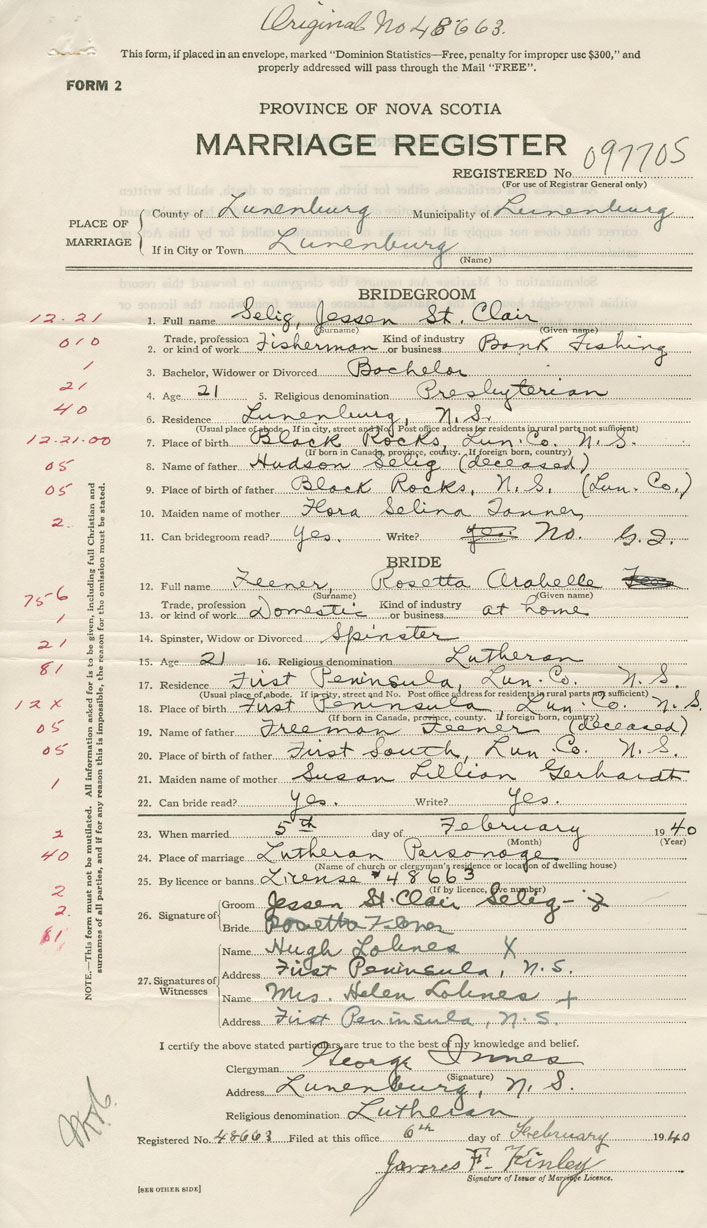 Original No 48663.
This form, if placed in an envelope, marked "Dominion Statistics—Free, penalty for improper use $300," and
properly addressed will pass through the Mail "FREE".
FORM 2
PROVINCE OF NOVA SCOTIA
MARRIAGE REGISTER
REGISTERED No. 097705
(For use of Registrar General only)
PLACE OF MARRIAGE
County of Lunenburg Municipality of Lunenburg
If in City or Town Lunenburg
(Name)
BRIDEGROOM
12-21 1. Full name Selig, Jessen St. Clair
(Surname) (Given name)
010 2. Trade, profession or kind of work Fisherman Kind of industry or business Bank Fishing
1 3. Bachelor, Widower or Divorced Bachelor
21 4. Age 21 5. Religious denomination Presbyterian
40 6. Residence Lunenburg, N.S.
(Usual place of abode. If in city, street and No. Post office address for residents in rural parts not sufficient)
12-21-00 7. Place of birth Black Rocks, Lun. Co. N.S.
(If born in Canada, province, county. If foreign born, country)
05 8. Name of father Hudson Selig (deceased)
05 9. Place of birth of father Black Rocks, N.S. (Lun. Co.)
10. Maiden name of mother Flora Selina Tanner
2 11. Can bridegroom read? Yes. Write? yes No. G.I.
BRIDE
12. Full name Feener, Rosetta Arabelle
(Surname) (Given name)
756
1 13. Trade, profession or kind of work Domestic Kind of industry or business at home
21 14. Spinster, Widow or Divorced Spinster
81 15. Age 21 16. Religious denomination Lutheran
17. Residence First Peninsula, Lun. Co. N.S.
(Usual place of abode. If in city, street and No. Post office address for residents in rural parts not sufficient)
12X 18. Place of birth First Peninsula, Lun. Co. N.S.
(If born in Canada, province, county. If foreign born, country)
05 19. Name of father Freeman Feener (deceased)
05 20. Place of birth of father First South, Lun. Co. N.S.
21. Maiden name of mother Susan Lillian Gerhardt
1 22. Can bride read? Yes. Write? Yes.
2 23. When married 5th day of February 1940
(Month) (Year)
40 24. Place of marriage Lutheran Parsonage
(Name of church or clergyman's residence or location of dwelling house)
2 25. By licence or banns License #48663
(If by licence, give number)
2 26. Signature of Groom Jessen St. Clair Selig
81 Bride Rosetta Feener
27. Signatures of Witnesses
Name Hugh Lohnes X
Address First Peninsula, N.S.
Name Mrs. Helen Lohnes +
Address First Peninsula, N.S.
NOTE.—This form must not be mutilated. All information asked for is to be given, including full Christian and
surnames of all parties, and if for any reason this is impossible, the reason for the omission must be stated.
I certify the above stated particulars are true to the best of my knowledge and belief.
Clergyman George Innes
(Signature)
Address Lunenburg, N.S.
Religious denomination Lutheran
Registered No. 48663 Filed at this office 6th day of February 1940
James F. Kinley
Signature of Issuer of Marriage Licence.
[SEE OTHER SIDE]